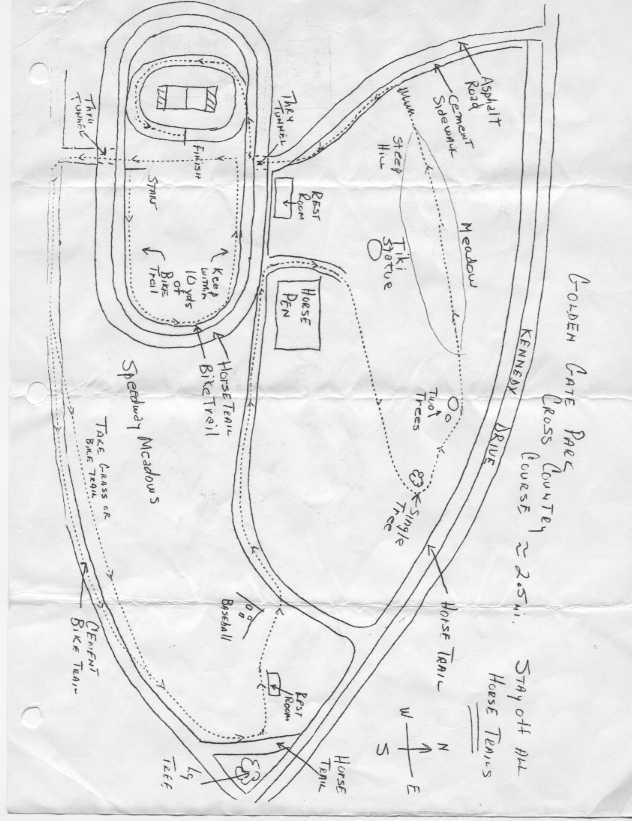 GOLDEN GATE PARK
CROSS COUNTRY
COURSE ≈ 2.5 mi.
STAY OFF ALL
HORSE TRAILS
N
W
E
S
KENNEDY DRIVE
HORSE TRAIL
Asphalt
Road
CEMENT
SIDEWALK
STEEP
HILL
Meadow
Tiki
Statue
Two
Trees
Single
Tree
THRU
TUNNEL
REST
ROOM
HORSE
PEN
THRU
TUNNEL
FINISH
START
Keep
within
10 yds
of
BIKE
Trail
HORSE TRAIL
Bike Trail
Speedway Meadows
TAKE GRASS OR
BIKE TRAIL
BASEBALL
REST
ROOM
CEMENT
BIKE TRAIL
HORSE
TRAIL
Lg
TREE